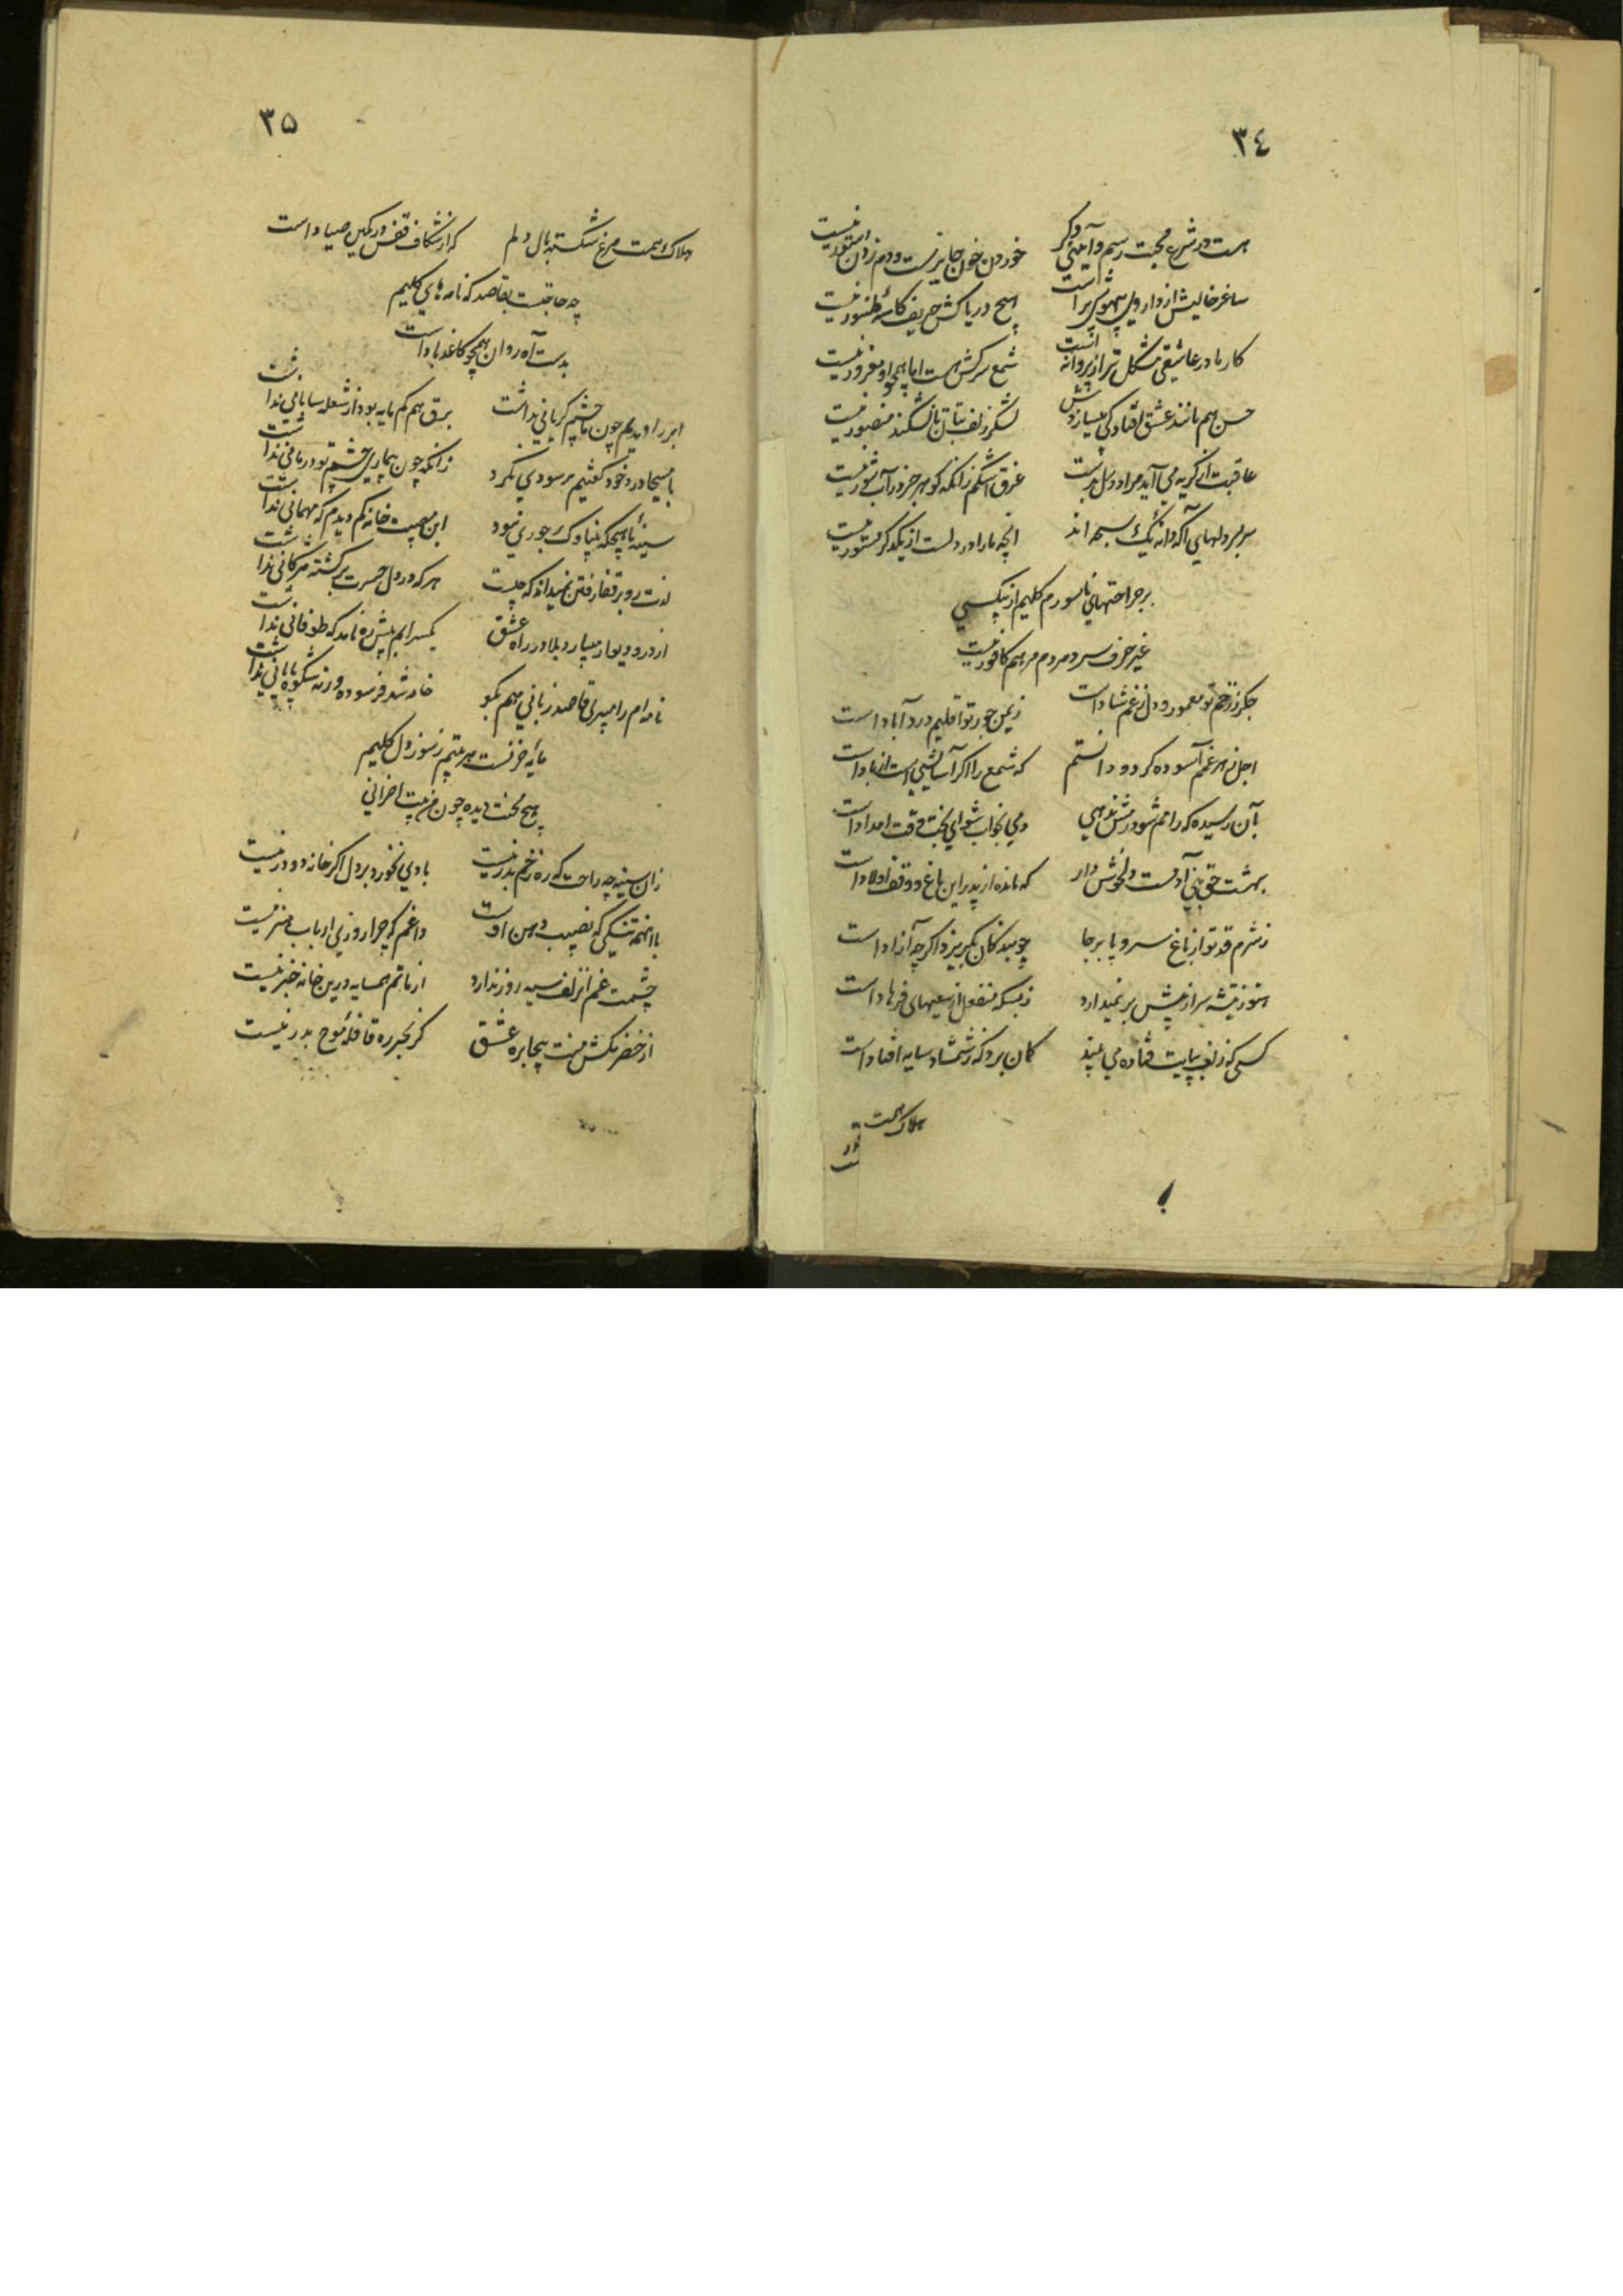 ٣٤
هست در شرع محبت رسم و آیینی دگر خوردن خون جایزست و دم زدن دستور نیست
ساغر خالیش از داروی بیهوشی پر است هیچ دریا کش حریف کاسه طنبور نیست
کار ما در عاشقی مشکل تر از پروانه است شمع سرکش هست اما همچو او مغرور نیست
حسن هم مانند عشق افتادگی میسازدش لشکر زلف بتان تا نشکند منصور نیست
عاقبت از گریه می آید مراد دل بدست غرق اشکم زانکه گوهر جز در آب شور نیست
سربسر دلهای آگه دانه یک سبحه اند انچه ما را در دلست از یکدگر مستور نیست
بر جراحتهای ناسورم کلیم از بیکسی
غیر حرف سرد مردم مرهم کافور نیست
جگر ز زخم تو معمور و دل ز غم شاد است ز یمن جور تو اقلیم درد آباد است
اجل ز هر غمم آسوده کرد و دانستم که شمع را اگر آسایشی است از باد است
بآن رسیده که رامم شود دمی بخواب شو ای بخت وقت امداد است
بهشت حق بنی آدمست دلخوش دار که مانده از پدر این باغ و وقف اولاد است
ز شرم قد تو از باغ سرو پا برجا چو بندگان بگریزد اگرچه آزاد است
هنوز تیشه سر از پیش بر نمیدارد ز بسکه منفعل از سعیهای فرهاد است
کسی که زلف بپایت فتاده می بیند گمان برد که ز شمشاد سایه افتاد است
هلاک همت
٣٥
هلاک همت مرغ شکسته بال دلم که از شکاف قفس در کمین صیاد است
چه حاجتست بقاصد که نامه های کلیم
بدست آه روان همچو کاغذ باد است
ابر را دیدیم چون ما چشم گریانی نداشت برق هم کم مایه بود از شعله سامانی نداشت
با مسیحا درد خود گفتیم پر سودی نکرد زانکه چون بیماری چشم تو درمانی نداشت
سینه ما هیچگه بی ناوک جوری نبود این مصیبت خانه کم دیدم که مهمانی نداشت
لذت رو بر قفا رفتن نمیداند که چیست هر که در دل حسرت برگشته مژگانی نداشت
از در و دیوار میبارد بلا در راه عشق یکسرابم پیش ره نامد که طوفانی نداشت
نامه ام را میبری قاصد زبانی هم بگو خامه شد فرسوده ورنه شکوه پایانی نداشت
کلیم
زان سینه چه راحت که ره زخم بدر نیست بادی نخورد بر دل اگر خانه دو در نیست
با اینهمه تنگی که نصیب دهن اوست داغم که چرا روزی ارباب هنر نیست
چشمت غم از زلف سیه روز ندارد از ماتم همسایه درین خانه خبر نیست
از خضر مکش منت بیجا بره عشق گر بحر ره قافله موج بدر نیست